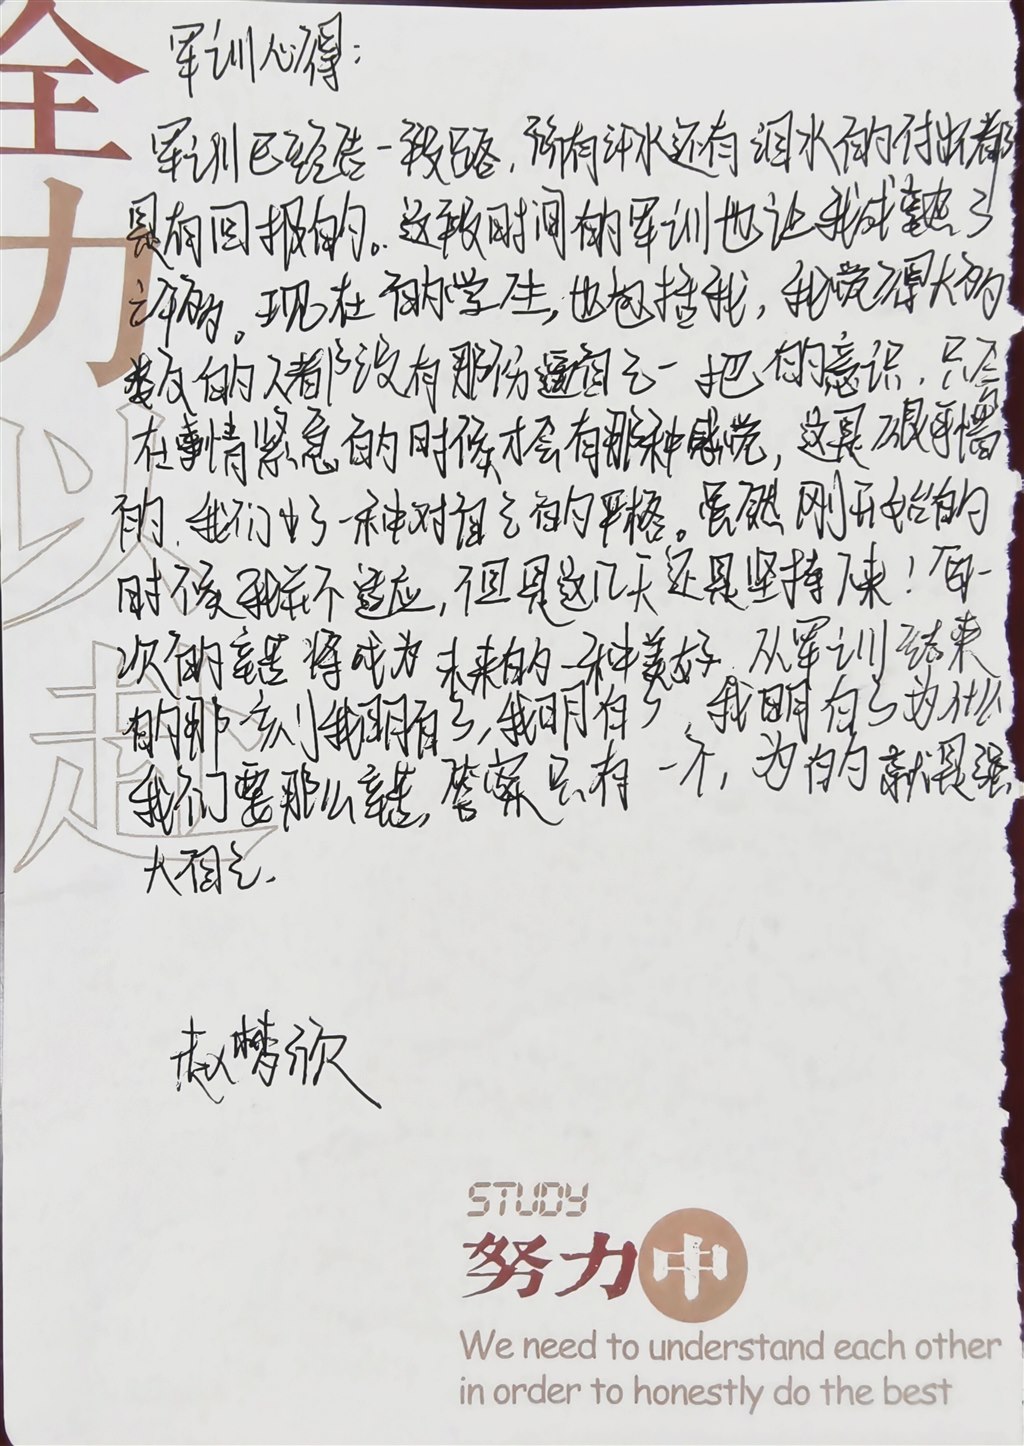 全力以赴
军训心得：
军训已经告一段落，所有汗水还有泪水的付出都
是有回报的。这段时间的军训也让我成熟了
许多。现在的学生，也包括我，我觉得大多
数的人都没有那份逼自己一把的意识，只会
在事情紧急的时候才会有那种感觉，这是很可惜
的，我们少了一种对自己的严格。虽然刚开始的
时候我并不适应，但是这几天还是坚持下来！每一
次的辛苦将成为未来的一种美好，从军训结束
的那一刻我明白了，我明白了，我明白了为什么
我们要那么辛苦，答案只有一个，为的就是强
大自己。
赵梦欣
STUDY
努力中
We need to understand each other
in order to honestly do the best